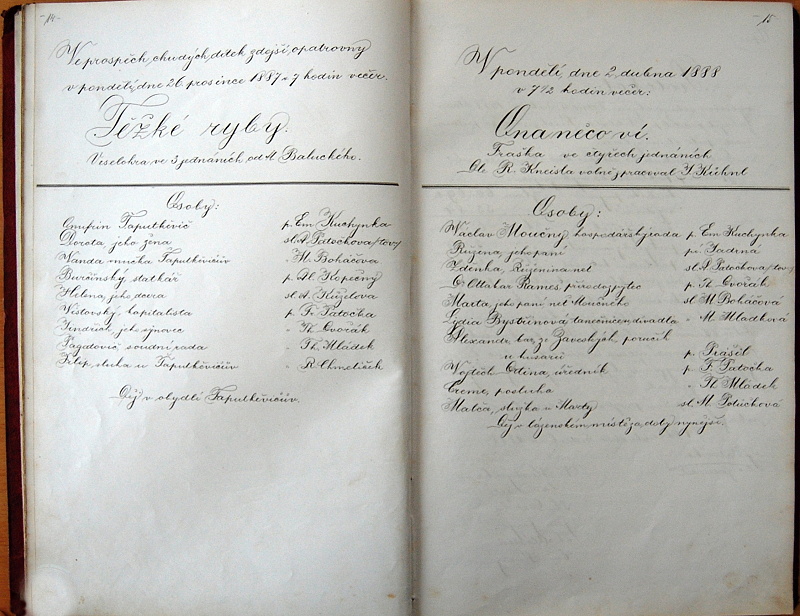 -14-
Ve prospěch chudých dítek zdejší opatrovny
v pondělí, dne 26. prosince 1887 v 7 hodin večer.
Těžké ryby.
Veselohra ve 3 jednáních, od A. Baluckého.
Osoby:
Onufrin Taputkěvič p. Em Kuchynka
Dorota jeho žena sl. A. Patochova (tov)
Vanda vnučka Taputkěvičův " M. Boháčova
Burčinský statkář p. Al. Kopečný
Helena, jeho dcera sl. A. Kuželova
Vistovský, kapitalista p. Fr. Patočka
Jindřich, jeho synovec " Th. Dvořák
Pagatovič soudní rada " Th. Mládek
Filip, sluha u Taputkěvičův " R. Chmelíček
Děj v obydlí Taputkěvičův.
-15-
V pondělí, dne 2. dubna 1888
v 7 1/2 hodin večer:
Ona něco ví.
Fraška ve čtyřech jednáních
Dle R. Kneisla volně zpracoval J. Kühnl
Osoby:
Václav Moučný, hospodářský rada p. Em Kuchynka
Růžena, jeho paní pí.
Zdenka, Růženina neť sl. A. Patochova (tov)
Dr. Ottakar Rameš, přírodozpytec p. Th. Dvořák
Marta, jeho paní, neť Moučného sl. M. Boháčová
Lydia Bystřinová, tanečnice n. divadla " M. Mladková
Alexandr, bar. ze Záveských, poručík
u husarů p. Prášil
Vojtěch Odlina, úředník p. F. Patočka
Creme, posluha " Th. Mládek
Malča, služka u Marty sl. M. Potůčková
Děj v lázeňském místě za doby nynější.